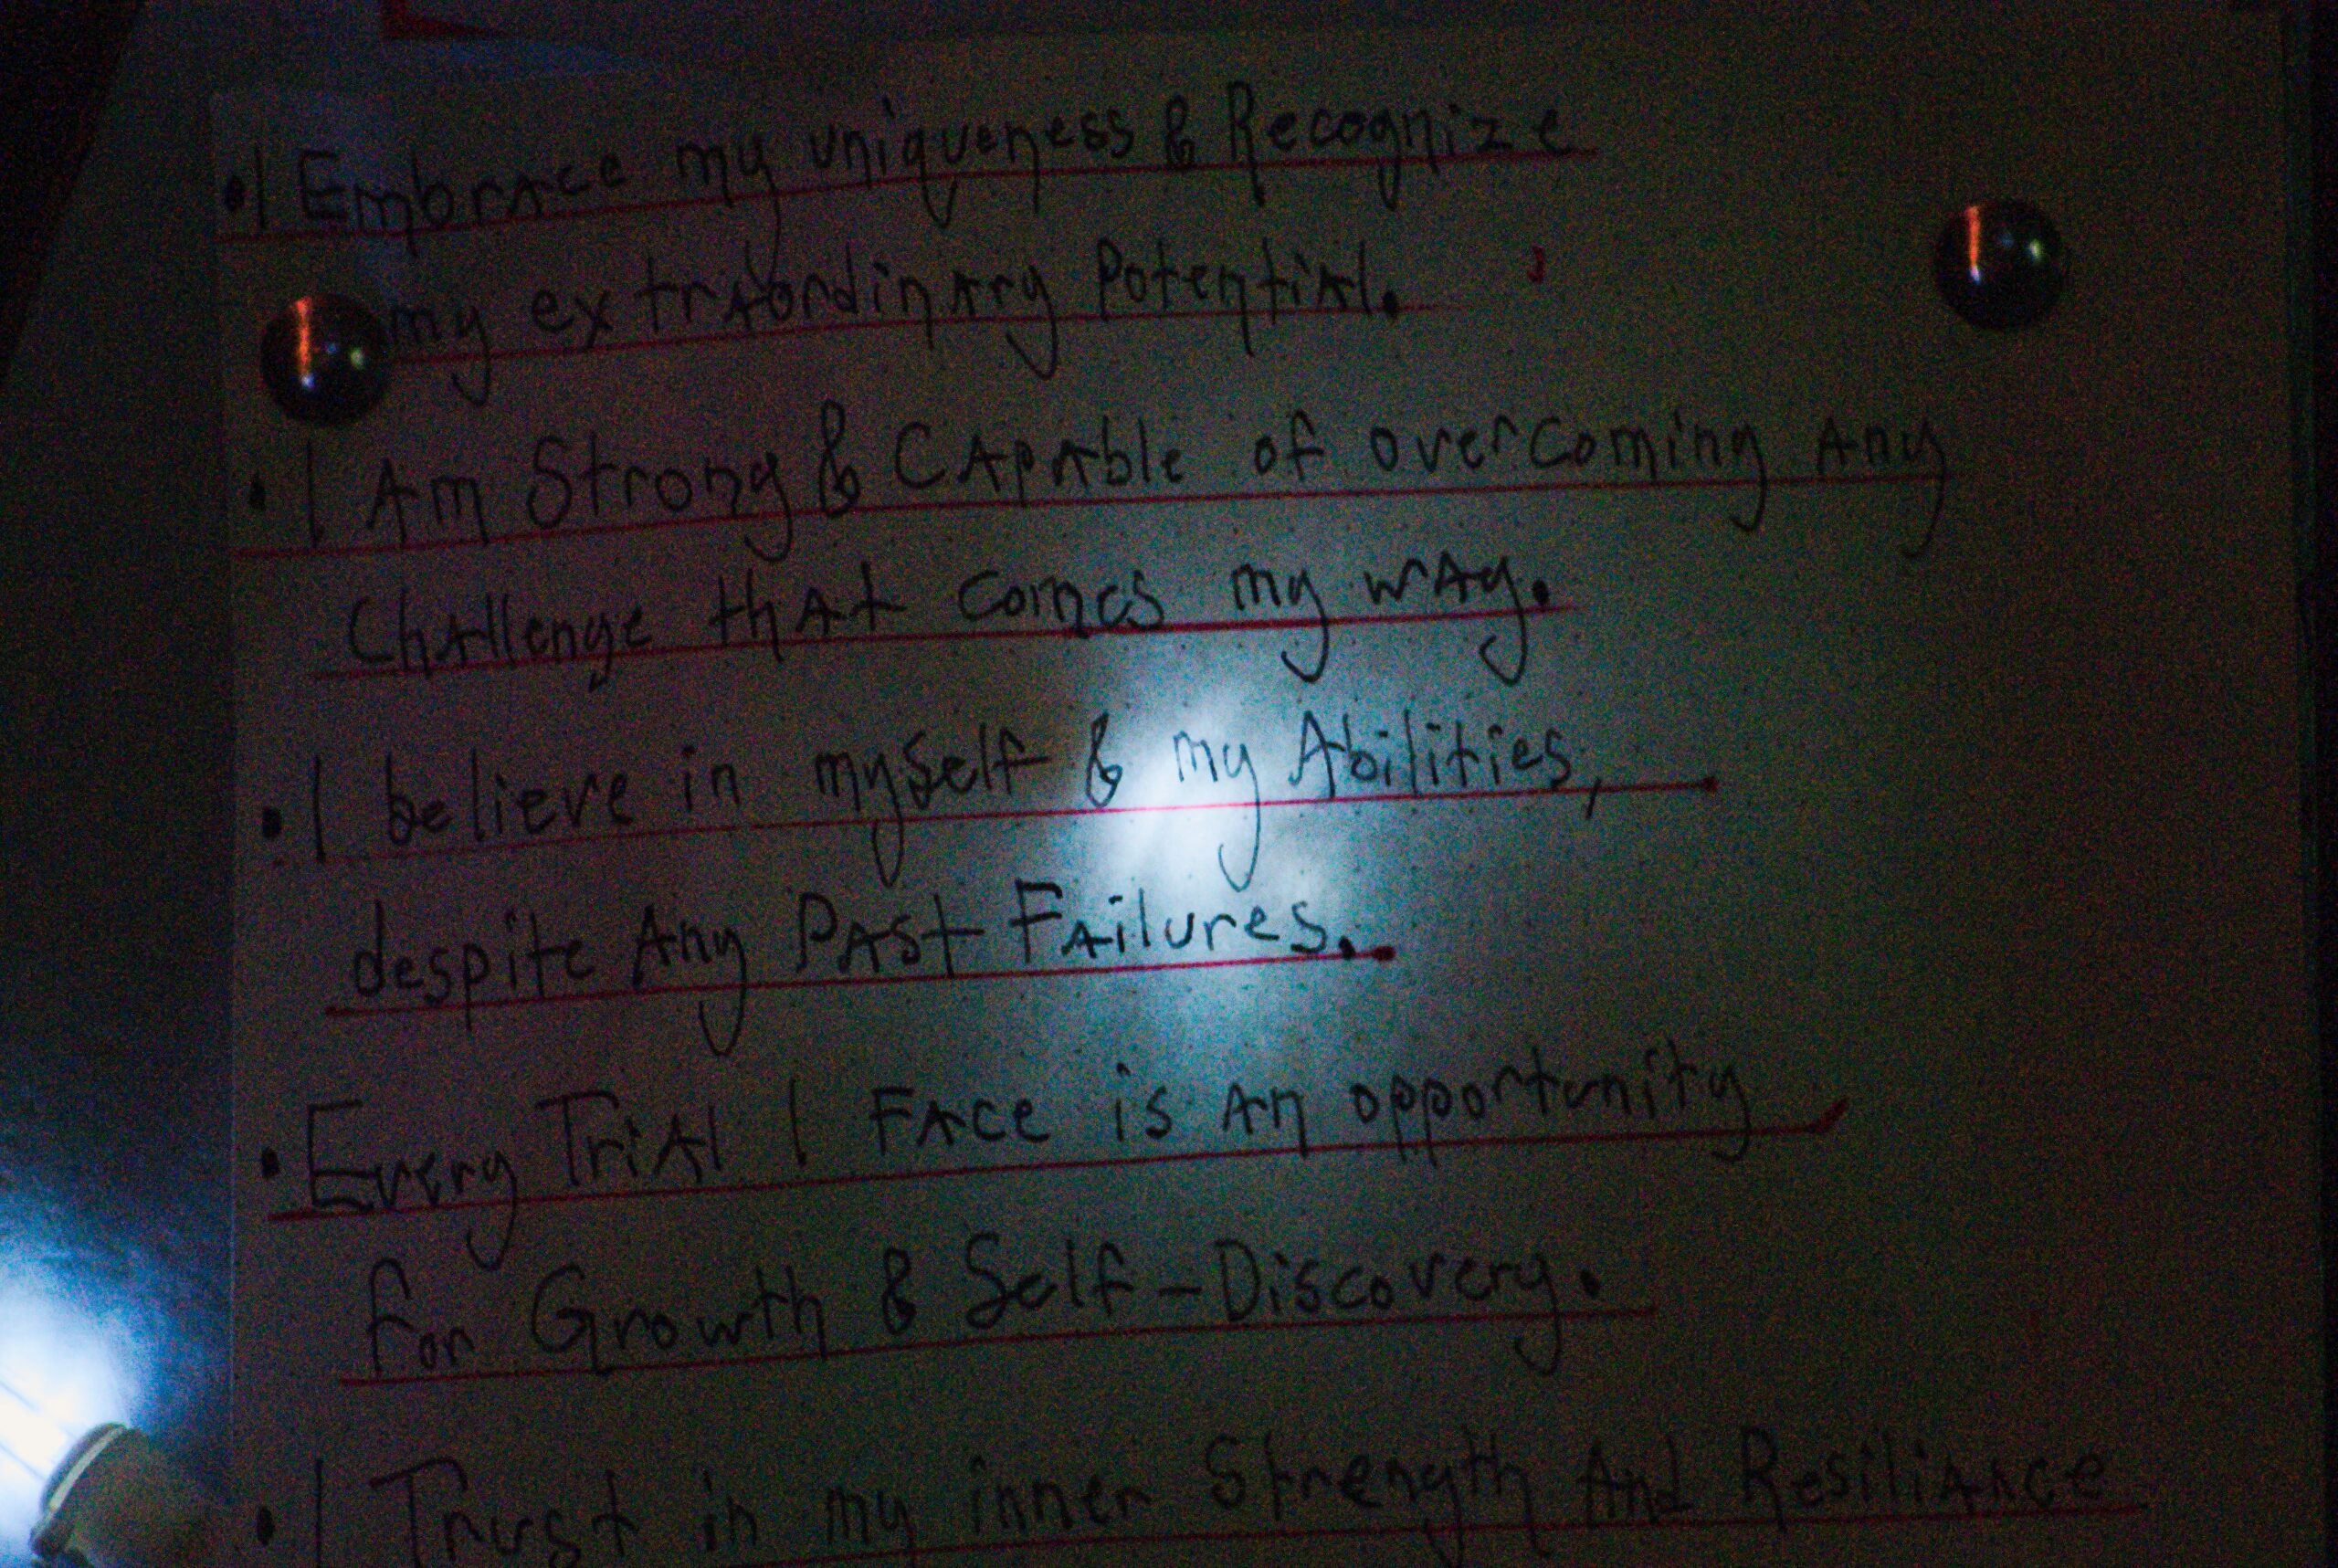 • I Embrace my uniqueness & Recognize
my extraordinary Potential.
• I Am Strong & CApAble of overcoming Any
Challenge thAt comes my wAy.
• I believe in myself & my Abilities,
despite Any PAst FAilures.
• Every TriAl I FAce is An opportunity
for Growth & Self-Discovery.
• I Trust in my inner Strength And ResiliAnce